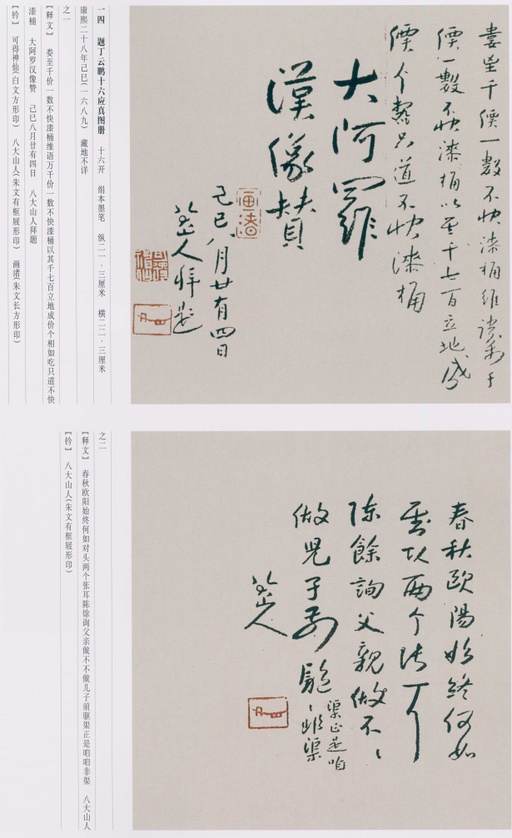 娄至千價一數不快漆桶維語萬千
價一數不快漆桶以至千七百立地成
價个只道不快漆桶
大阿羅
漢像贊
画渚
己巳八月廿有四日
八大山人拜題
可得神仙
一四 题丁云鹏十六应真图册 十六开 绢本墨笔 纵二一·三厘米 横二二·三厘米
康熙二十八年己巳(一六八九) 藏地不详
之一
【释文】 娄至千价一数不快漆桶维语万千价一数不快漆桶以其千七百立地成价个相如吃只道不快
漆桶 大阿罗汉像赞 己巳八月廿有四日 八大山人拜题
【钤】 可得神仙(白文方形印) 八大山人(朱文有框屐形印) 画渚(朱文长方形印)
春秋歐陽始終何如
两个張耳
陳餘詢父親做不、
做兒子前驅
渠正是咱
、非渠
八大山人
之二
【释文】 春秋欧阳始终何如对头两个张耳陈馀询父亲做不不做儿子前驱渠正是咱咱非渠 八大山人
【钤】 八大山人(朱文有框屐形印)